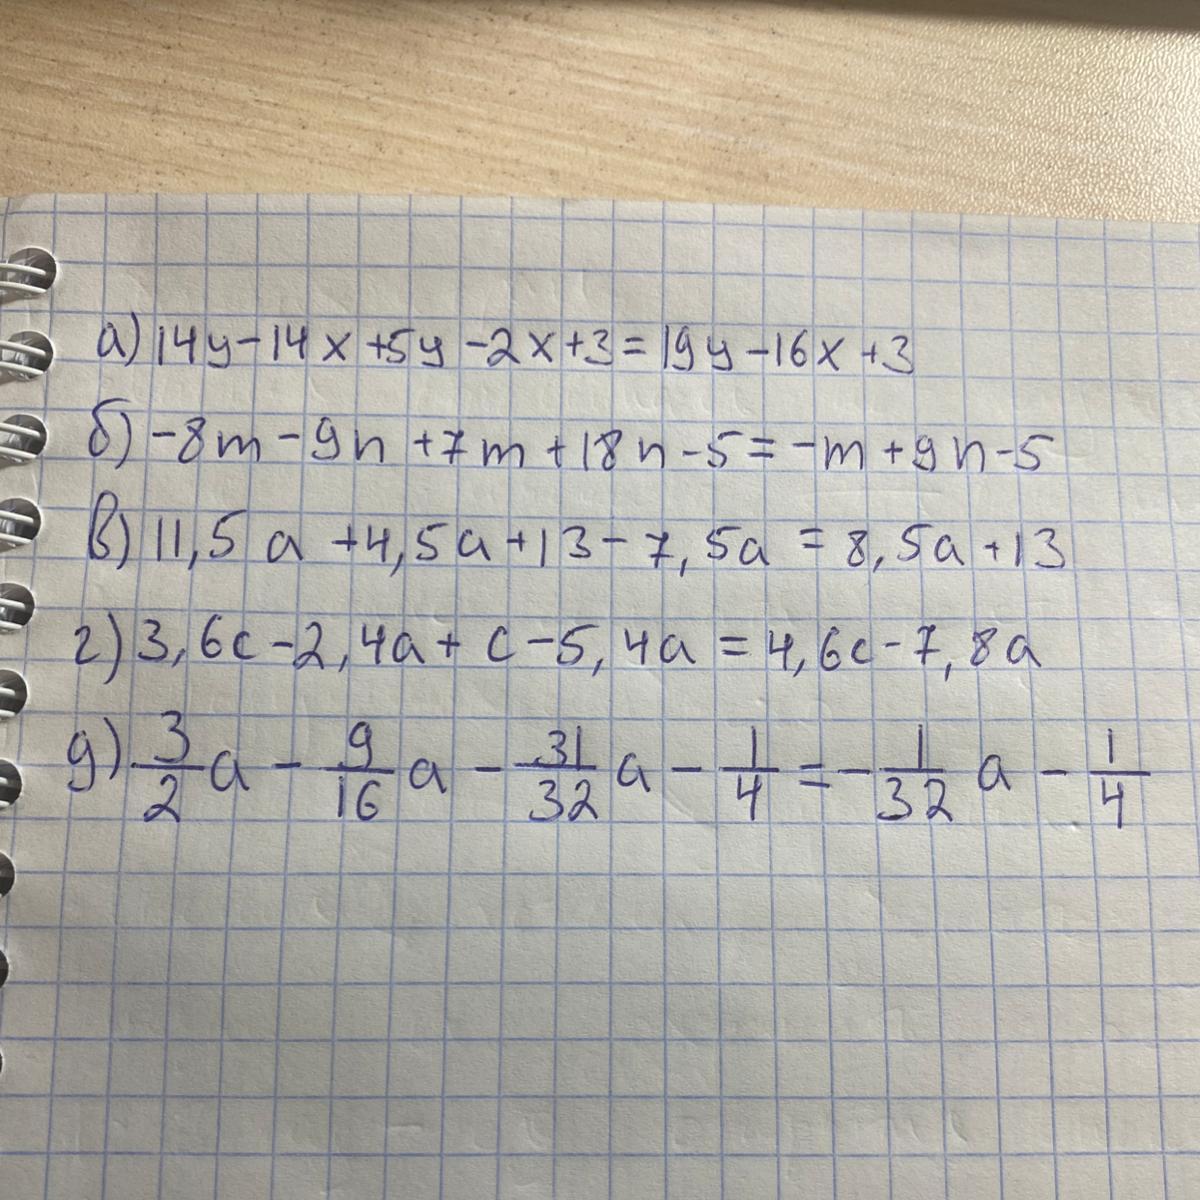 а) 14y-14x+5y-2x+3=19y-16x+3
б) -8m-9n+7m+18n-5=-m+9n-5
в) 11,5a+4,5a+13-7,5a=8,5a+13
г) 3,6c-2,4a+c-5,4a=4,6c-7,8a
д) 3/2a - 9/16a - 31/32a - 1/4 = -1/32a - 1/4